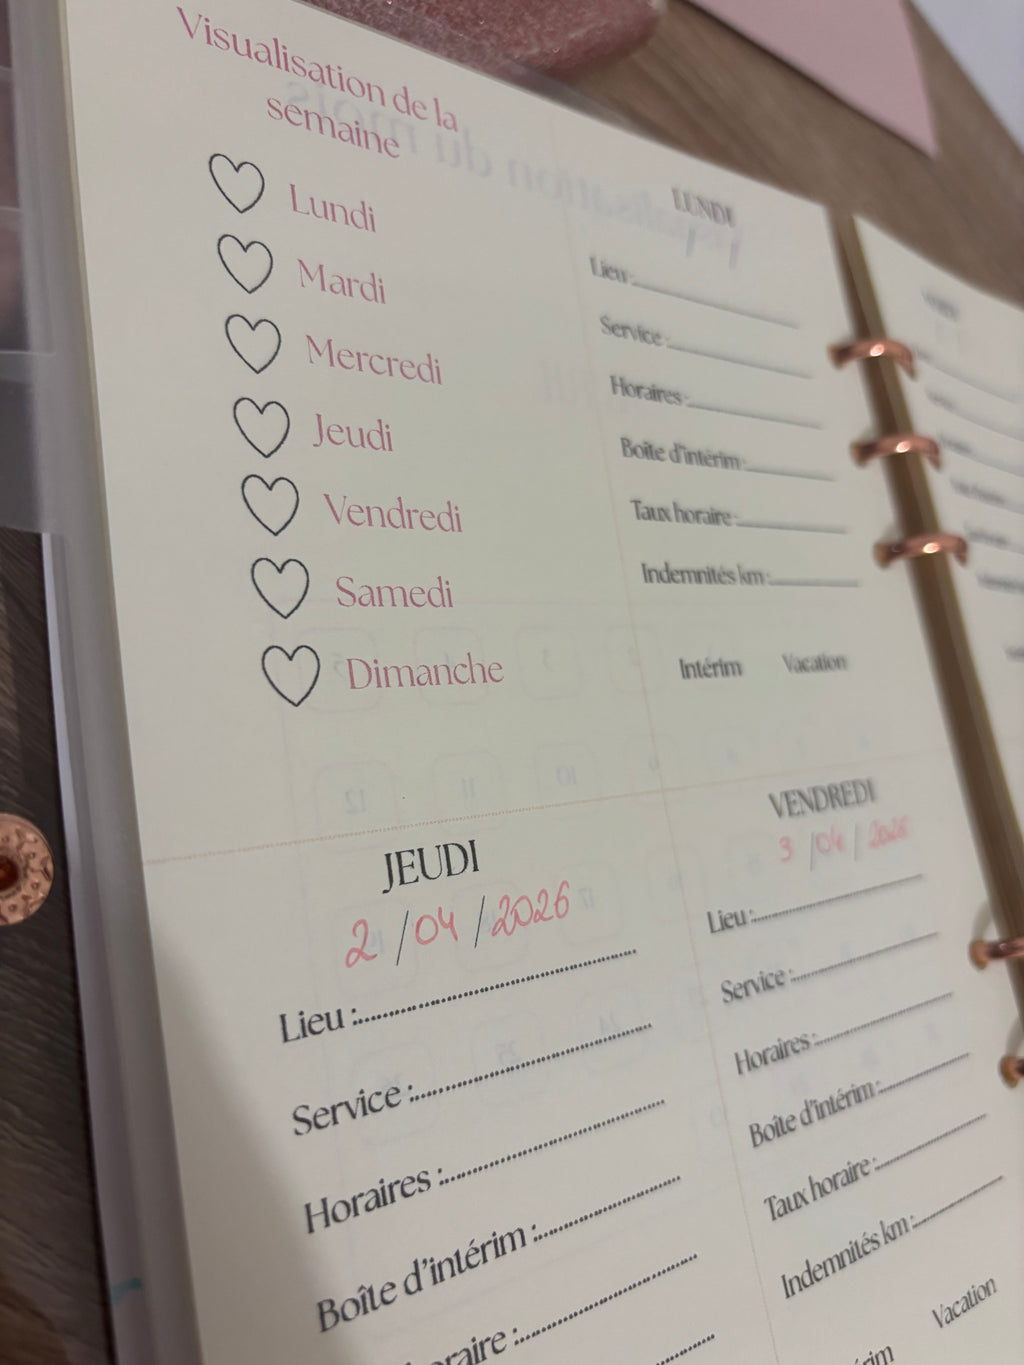 Visualisation de la
semaine
Lundi
Mardi
Mercredi
Jeudi
Vendredi
Samedi
Dimanche
LUNDI
Lieu :
Service :
Horaires :
Boîte d'intérim :
Taux horaire :
Indemnités km :
Intérim Vacation
JEUDI
2/04/2026
Lieu :
Service :
Horaires :
Boîte d'intérim :
oraire :
VENDREDI
3/04/2026
Lieu :
Service :
Horaires :
Boîte d'intérim :
Taux horaire :
Indemnités km :
érim Vacation